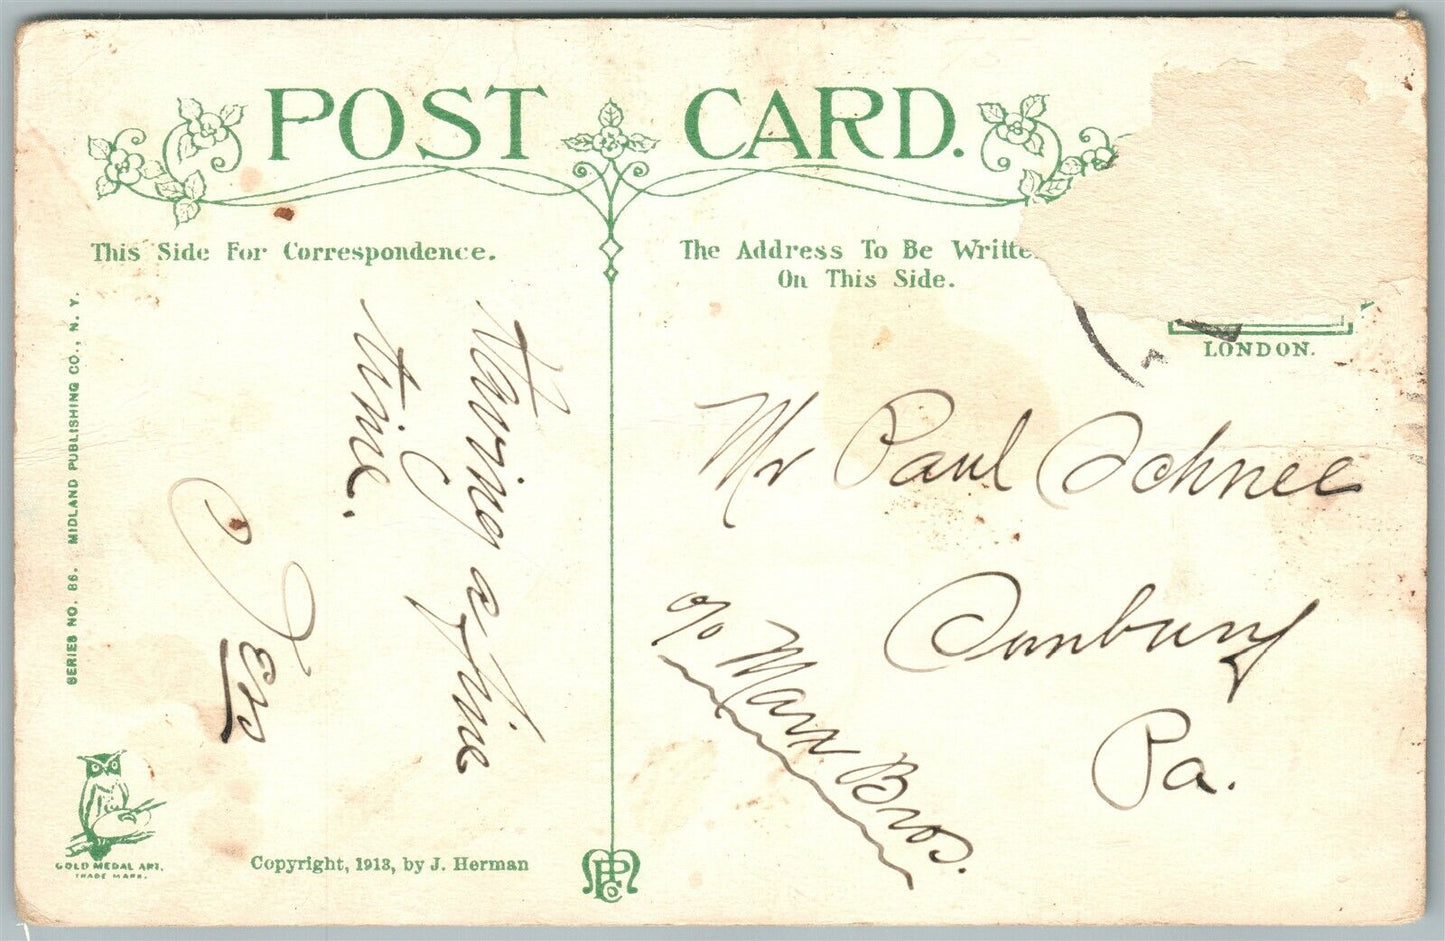 POST CARD.
This Side For Correspondence.
The Address To Be Writte
On This Side.
LONDON.
SERIES NO. 86. MIDLAND PUBLISHING CO., N. Y.
Having a fine
time.
Mr Paul Schnee
Sunbury
Pa.
c/o Marx Bros.
GOLD MEDAL ART.
TRADE MARK.
Copyright, 1913, by J. Herman